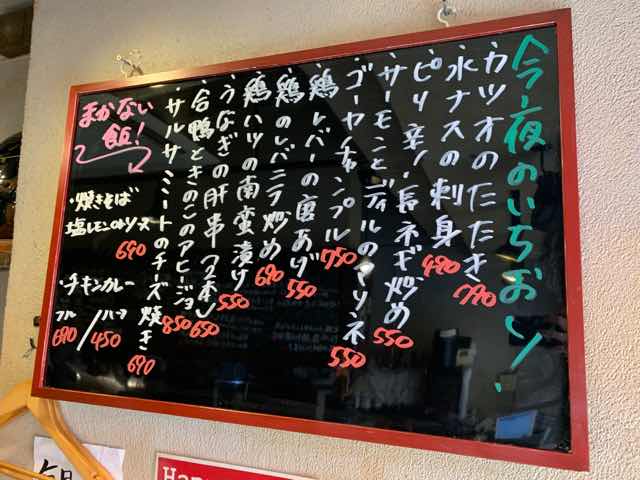 今夜のいちおし!
・カツオのたたき 790
・水ナスの刺身 490
・ピリ辛!長ネギ炒め 550
・サーモンとディルのマリネ 550
・ゴーヤチャンプル 750
・鶏レバーの唐あげ 550
・鶏のレバニラ炒め 690
・鶏ハツの南蛮漬け 550
・うなぎの肝串(2本) 650
・合鴨ときのこのアヒージョ 850
・サルサミートのチーズ焼き 690
まかない
飯!
・焼きそば
塩レモンorソース
690
・チキンカレー
フル/ハーフ
690 450